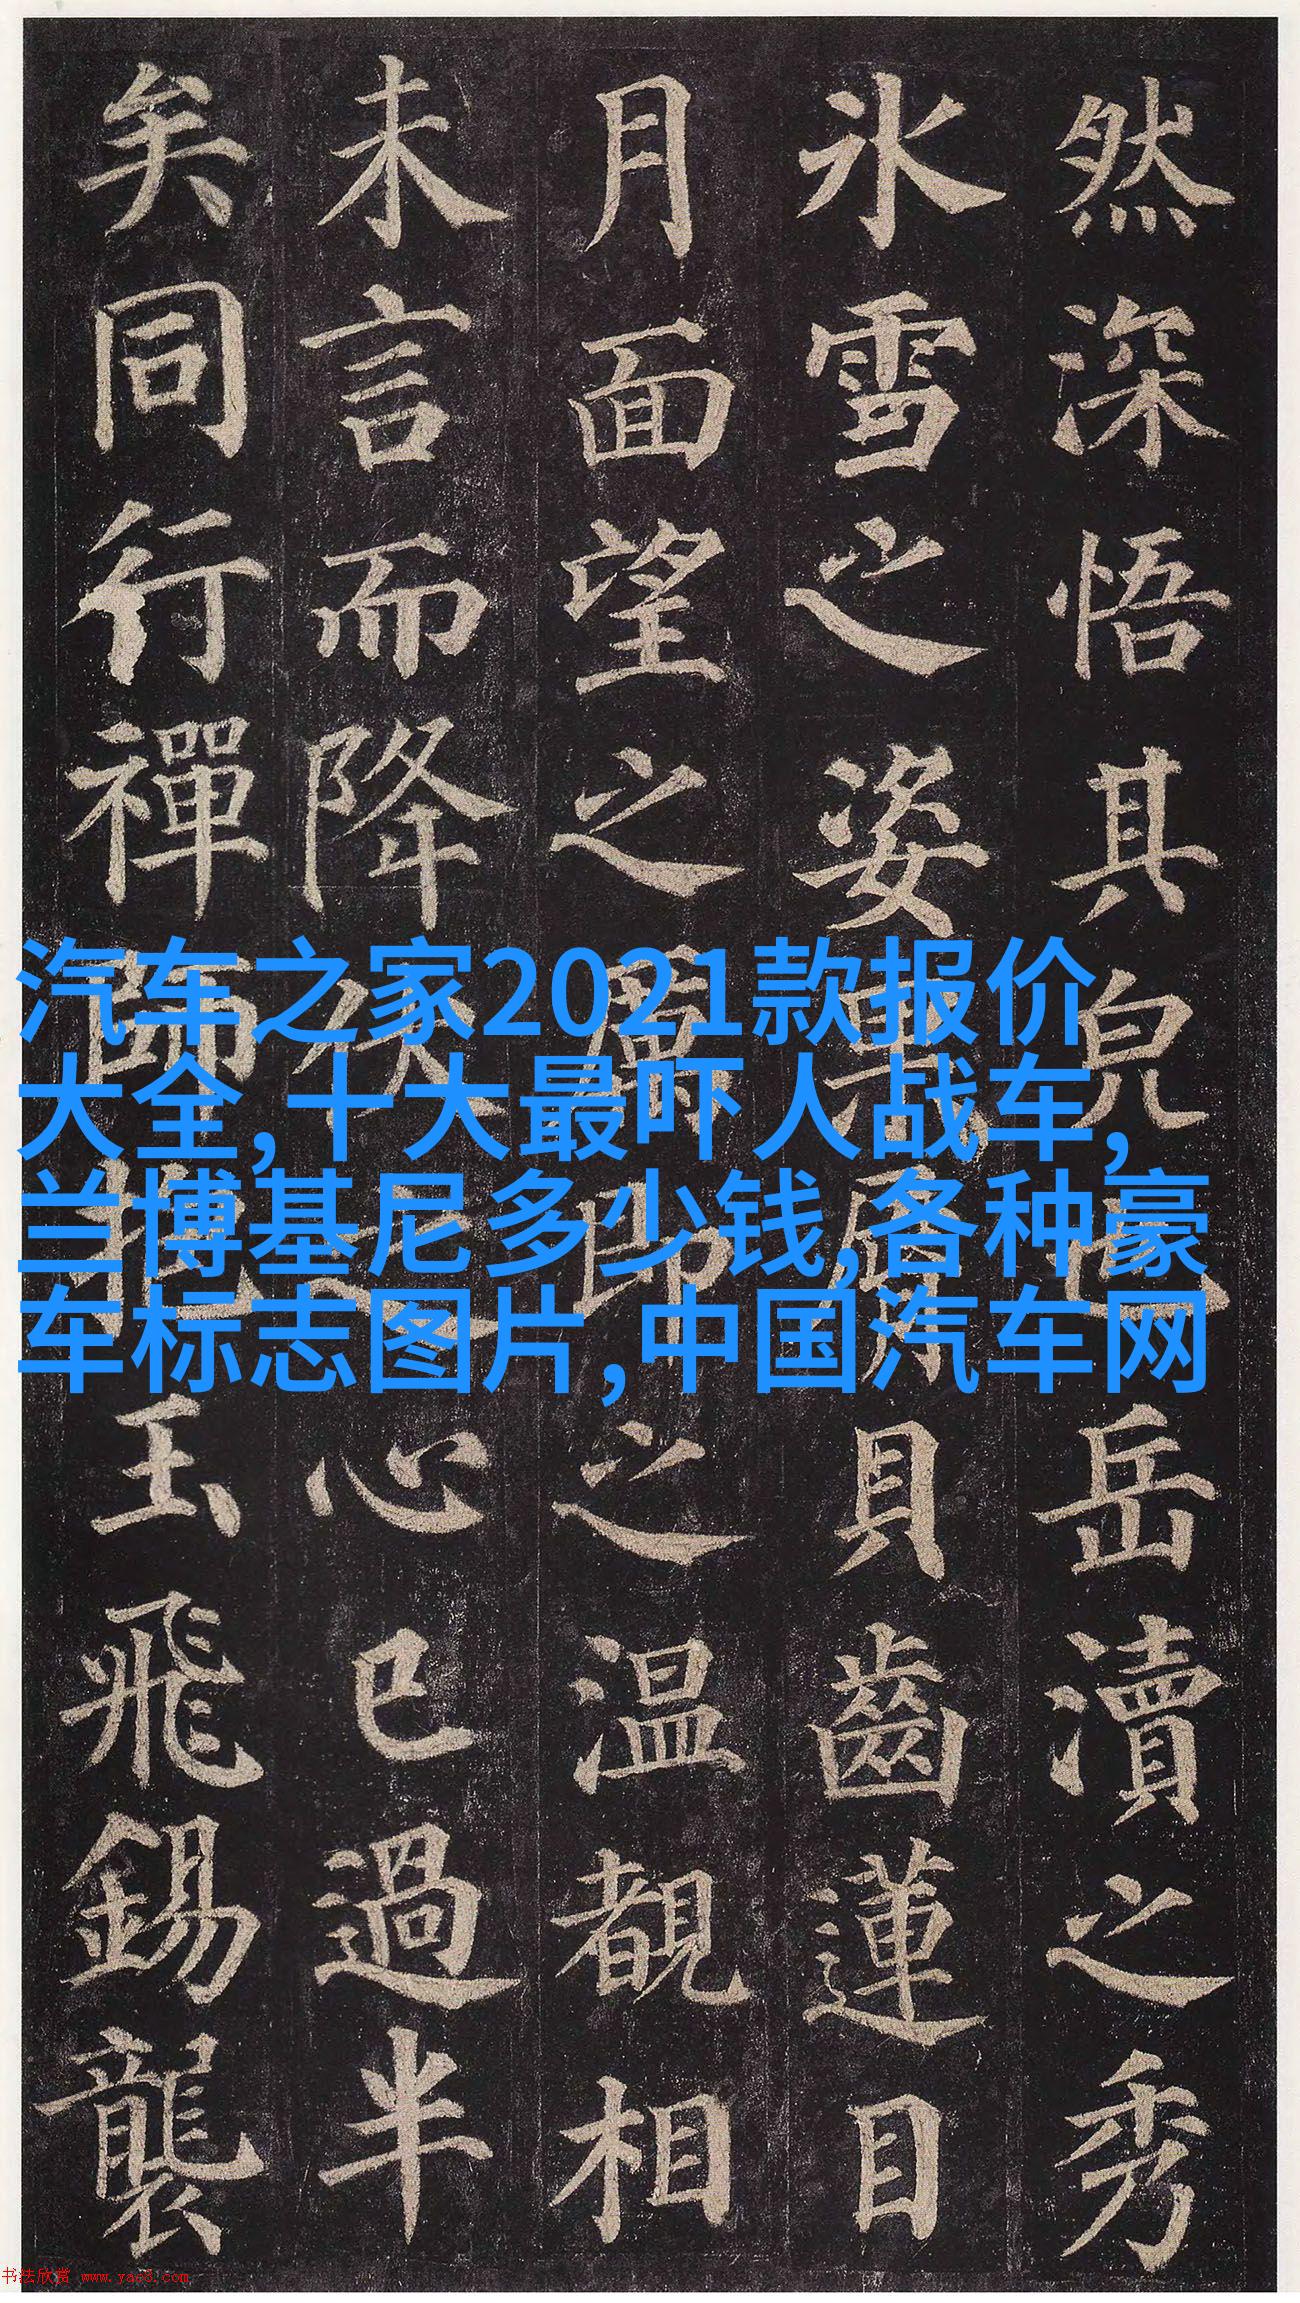 然深悟其皃也岳瀆之秀
氷雪之姿果脣貝齒蓮目
月面望之厲即之温覩相
未言而降伏之心已過半
矣同行禪師抱玉飛錫襲
汽车之家2021款报价
大全,十大最吓人战车,
兰博基尼多少钱,各种豪
车标志图片,中国汽车网
书法欣赏 www.yac8.com